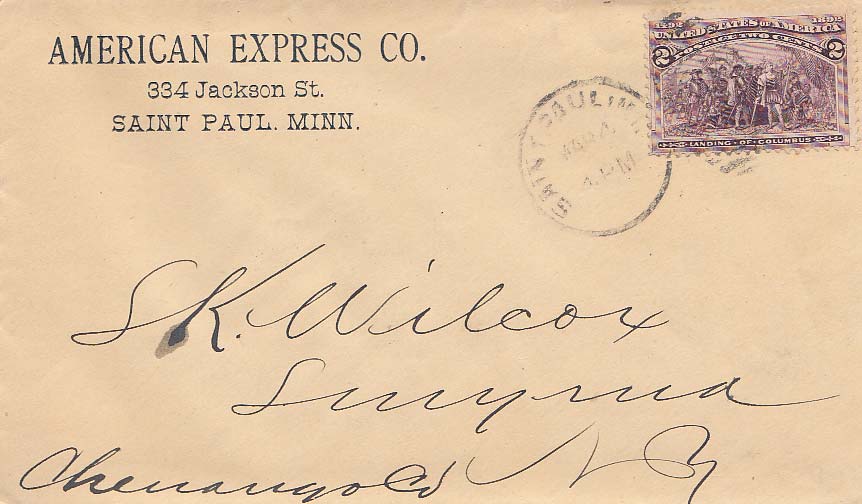 AMERICAN EXPRESS CO.
334 Jackson St.
SAINT PAUL. MINN.
1492 1892
UNITED STATES OF AMERICA
2 POSTAGE TWO CENTS 2
LANDING OF COLUMBUS
SAINT PAUL, MINN
4 PM
S K. Wilcox
Smyrna
Chenango Co N Y